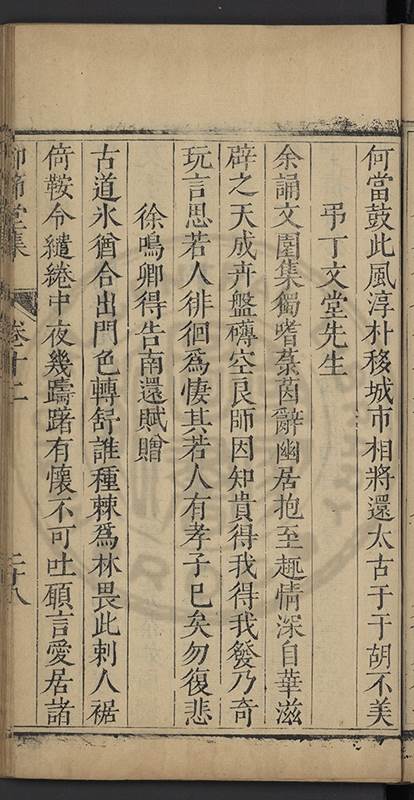 何當鼓此風淳朴移城市相將還太古于于胡不美
弔丁文堂先生
余誦文園集獨嗜蔡茵辭幽居抱至趣情深自華滋
辟之天成卉盤礡空良師因知貴得我得我發乃奇
玩言思若人徘徊爲悽其若人有孝子已矣勿復悲
徐鳴卿得告南還賦贈
古道氷猶合出門色轉舒誰種棘爲林畏此刺人裾
倚鞍令繾綣中夜幾躊躇有懷不可吐願言愛居諸
仰節堂集
卷十二
二十八